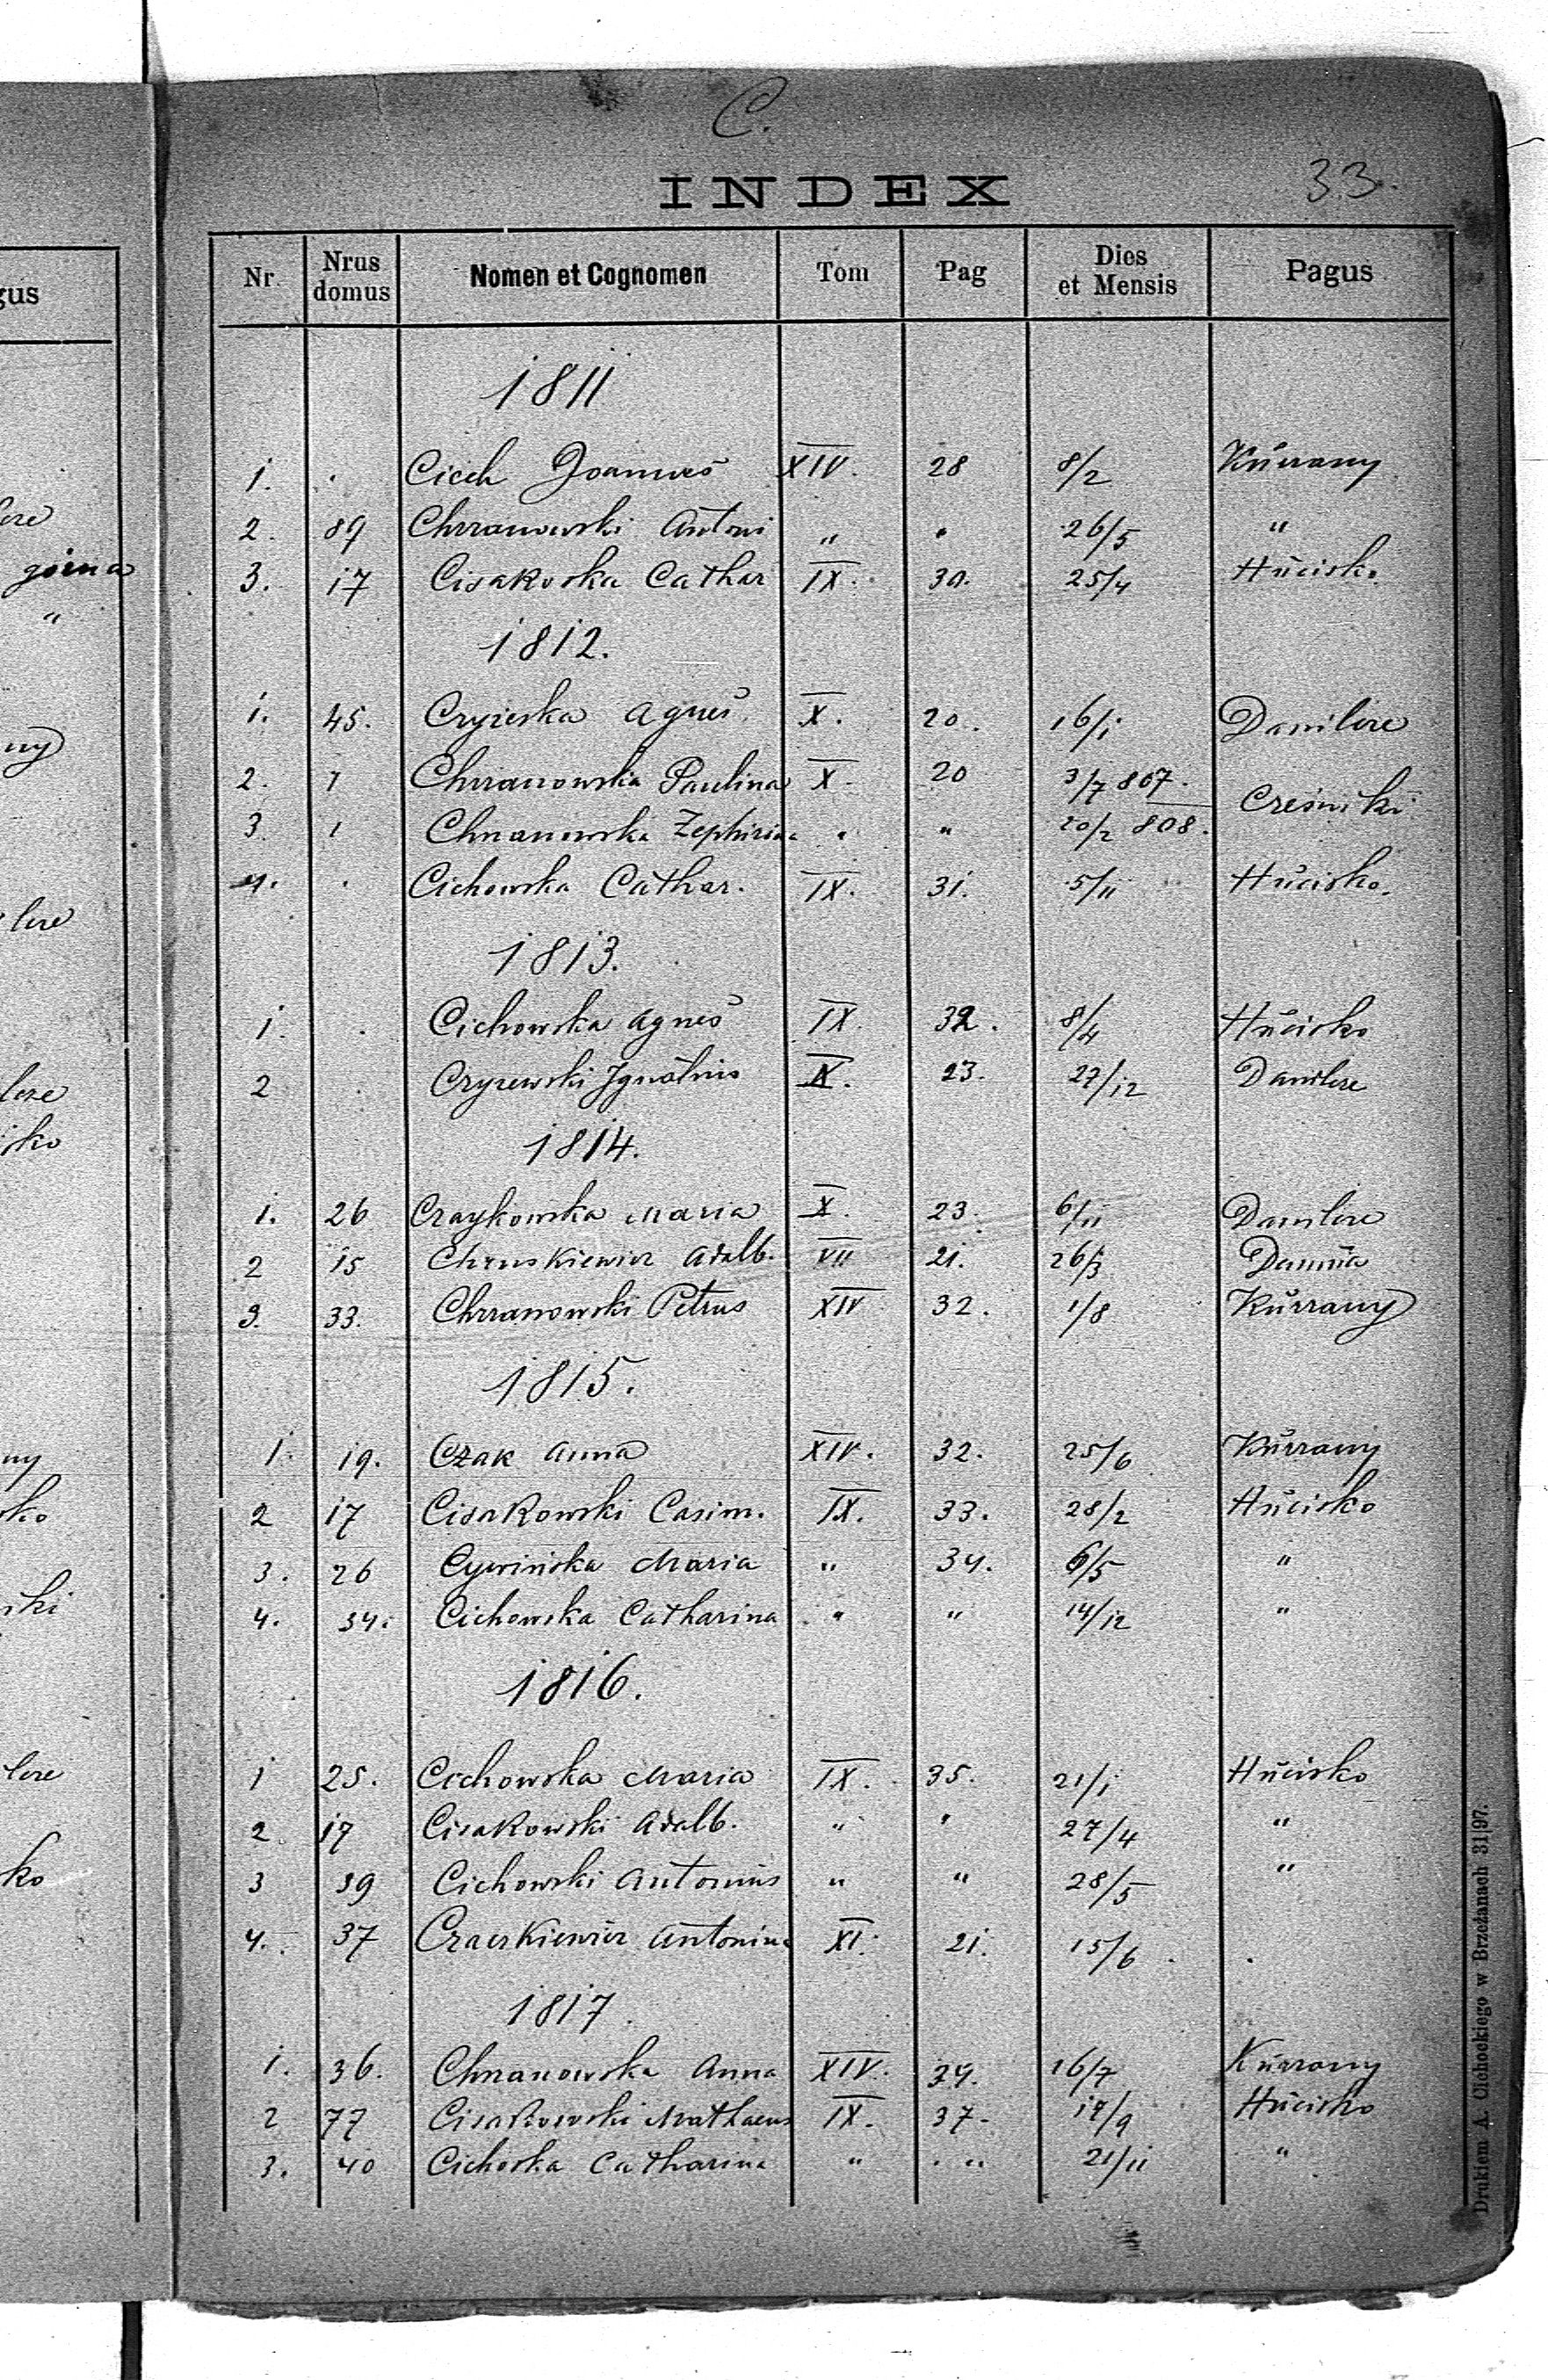 C.
33.
INDEX
Nr. Nrus domus Nomen et Cognomen Tom Pag Dies et Mensis Pagus
1811
1. . Cicch Joannes XIV. 28 8/2 Kurzany
2. 89 Chrzanowski Antoni " " 26/5 "
3. 17 Cisakoska Cathar IX. 30. 25/4 Hucisko
1812.
1. 45. Czyzeska Agnes X. 20. 16/1 Danilcze
2. 1 Chrzanowska Paulina X. 20 3/7 807.
Cześniki
3. 1 Chrzanowska Zephirina " " 20/2 808.
4. . Cichowska Cathar. IX. 31. 5/11 Hucisko.
1813.
1. . Cichowska Agnes IX. 32. 8/4 Hucisko
2 . Czyzewski Ignatius X. 23. 27/12 Danilcze
1814.
1. 26 Czaykowska Maria X. 23. 6/11 Danilcze
2 15 Chruskiewicz Adalb. VII 21. 26/3
3. 33. Chrzanowski Petrus XIV 32. 1/8 Kurzany
1815.
1. 19. Czak Anna XIV. 32. 25/6 Kurzany
2 17 Cisakowski Casim. IX. 33. 28/2 Hucisko
3. 26 Cywińska Maria " 34. 6/5 "
4. 34. Cichowska Catharina " " 14/12 "
1816.
1 25. Cichowska Maria IX. 35. 21/1 Hucisko
2 17 Cisakowski Adalb. " " 27/4 "
3 39 Cichowski Antonius " " 28/5 "
4. 37 Czaerkiewicz Antonina XI. 21. 15/6 .
1817.
1. 36. Chrzanowska Anna XIV. 34. 16/7 Kurzany
2 77 Cisakowski Mathaeus IX. 37. 17/9 Hucisko
3. 40 Cichoska Catharina " " 21/11 "
Drukiem A. Cichockiego w Brzeżanach 31|97.